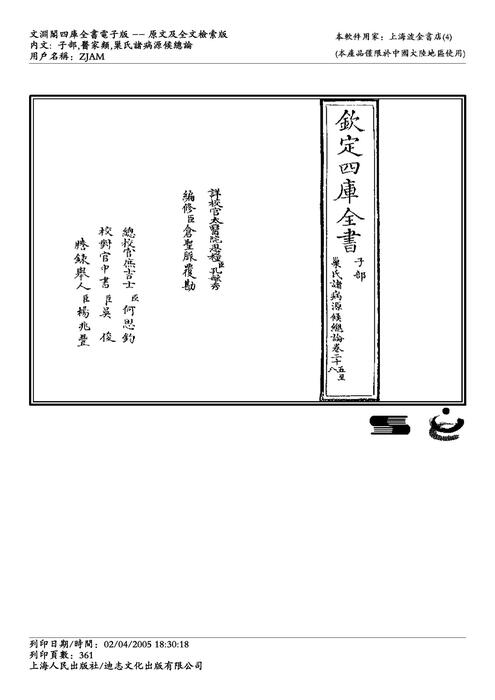 文淵閣四庫全書電子版 -- 原文及全文檢索版
內文: 子部,醫家類,巢氏諸病源候總論
用戶名稱: ZJAM
本軟件用家: 上海波金書店(4)
(本產品僅限於中國大陸地區使用)
欽定四庫全書
子部
巢氏諸病源候總論卷二十五至
八
詳校官太醫院恩糧臣孔毓秀
編修臣倉聖脈覆勘
總校官庶吉士臣何思鈞
校對官中書臣吳俊
謄錄舉人臣楊兆豐
列印日期/時間: 02/04/2005 18:30:18
列印頁數: 361
上海人民出版社/迪志文化出版有限公司